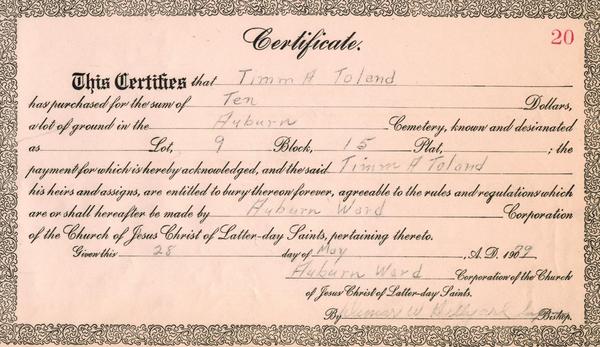 20
Certificate.
This Certifies that Timm A Toland
has purchased for the sum of Ten Dollars,
a lot of ground in the Auburn Cemetery, known and designated
as Lot, 9 Block, 15 Plat, ; the
payment for which is hereby acknowledged, and the said Timm A Toland
his heirs and assigns, are entitled to bury thereon forever, agreeable to the rules and regulations which
are or shall hereafter be made by Auburn Ward Corporation
of the Church of Jesus Christ of Latter-day Saints, pertaining thereto.
Given this 28 day of May , A. D. 1979
Auburn Ward Corporation of the Church
of Jesus Christ of Latter-day Saints.
By W Bishop.